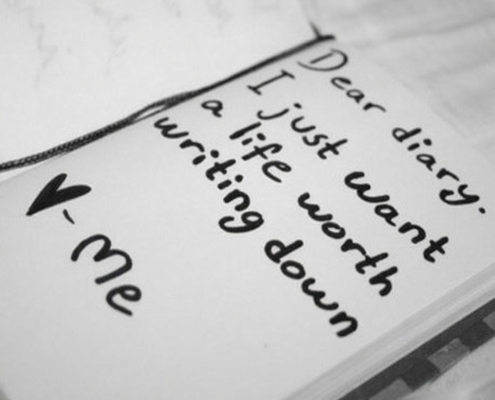 Dear diary.
I just want
a life worth
writing down
♥- Me